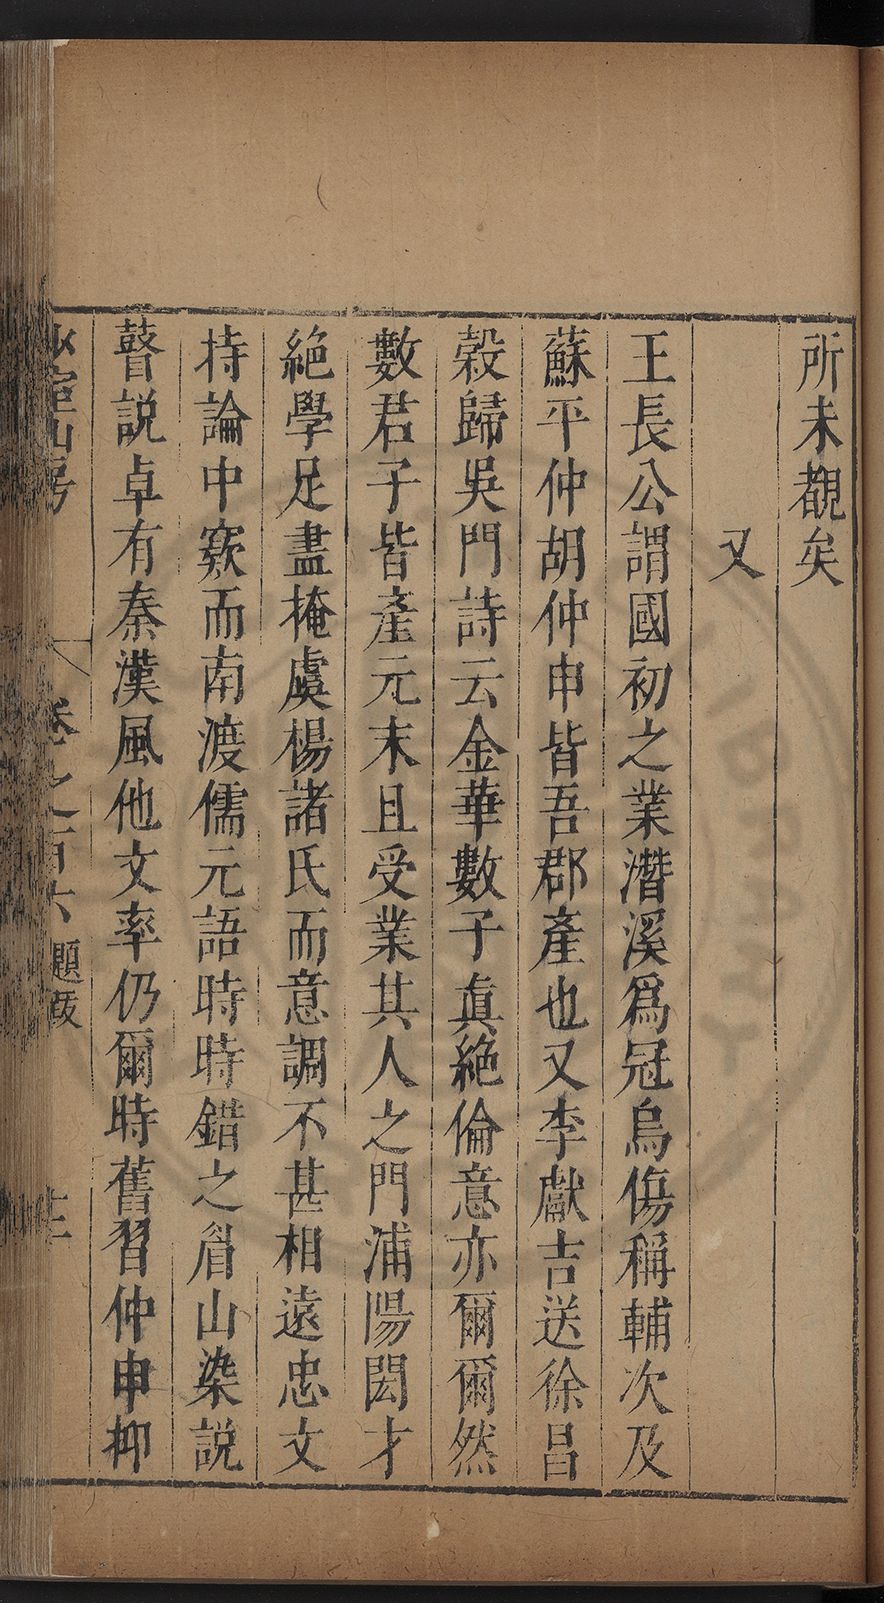 所未覩矣
又
王長公謂國初之業潛溪爲冠烏傷稱輔次及
蘇平仲胡仲申皆吾郡產也又李獻吉送徐昌
穀歸吳門詩云金華數子真絕倫意亦爾爾然
數君子皆產元末且受業其人之門浦陽閎才
絕學足盡掩虞楊諸氏而意調不甚相遠忠文
持論中窾而南渡儒元語時時錯之眉山染說
瞽說卓有秦漢風他文率仍爾時舊習仲申抑
卷之百六 題跋